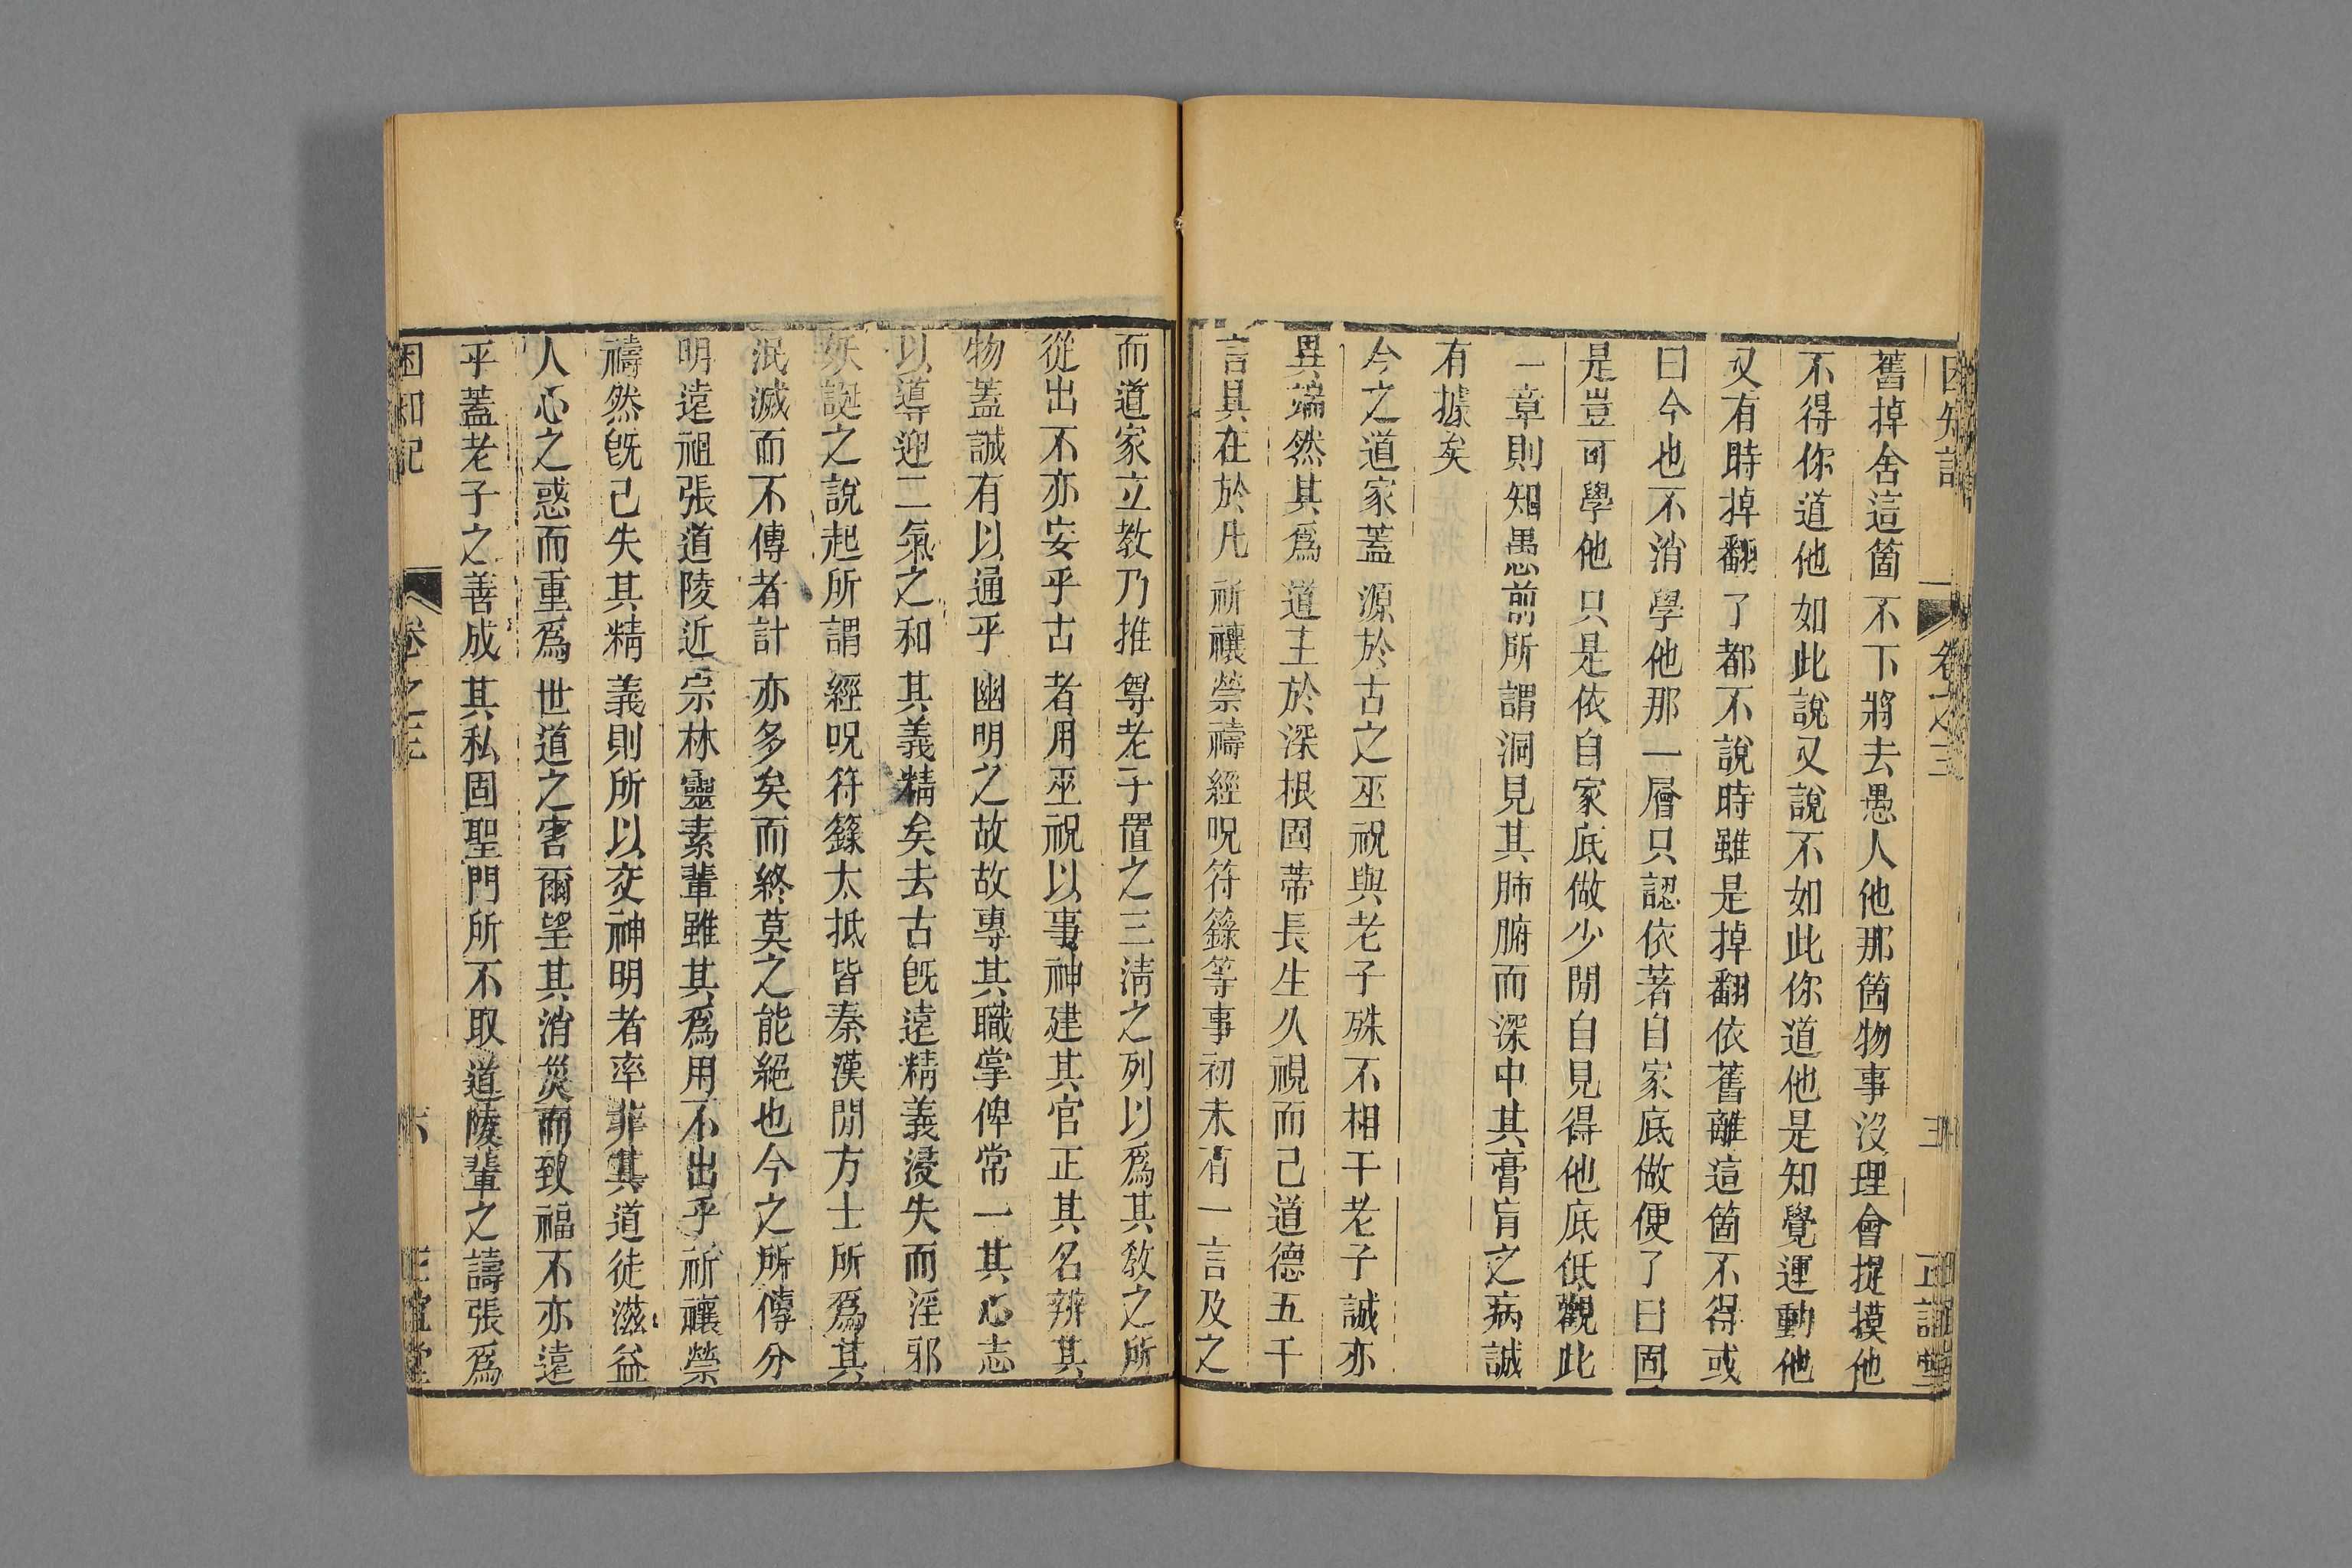 困知記 卷之三 三 正誼堂
舊掉舍這箇不下將去愚人他那箇物事沒理會捉摸他
不得你道他如此說又說不如此你道他是知覺運動他
又有時掉翻了都不說時雖是掉翻依舊離這箇不得或
曰今也不消學他那一層只認依著自家底做便了曰固
是豈可學他只是依自家底做少閒自見得他底低觀此
一章則知愚前所謂洞見其肺腑而深中其膏肓之病誠
有據矣
今之道家蓋源於古之巫祝與老子殊不相干老子誠亦
異端然其爲道主於深根固蒂長生久視而已道德五千
言具在於凡祈禳禜禱經呪符籙等事初未有一言及之
而道家立教乃推尊老子置之三淸之列以爲其敎之所
從出不亦妄乎古者用巫祝以事神建其官正其名辨其
物蓋誠有以通乎幽明之故故專其職掌俾常一其心志
以導迎二氣之和其義精矣去古旣遠精義浸失而淫邪
妖誕之說起所謂經呪符籙大抵皆秦漢閒方士所爲其
泯滅而不傳者計亦多矣而終莫之能絕也今之所傳分
明遠祖張道陵近宗林靈素輩雖其爲用不出乎祈禳禜
禱然旣已失其精義則所以交神明者率非其道徒滋益
人心之惑而重爲世道之害爾望其消災而致福不亦遠
乎蓋老子之善成其私固聖門所不取道陵輩之譸張爲
困知記 卷之三 六 正誼堂